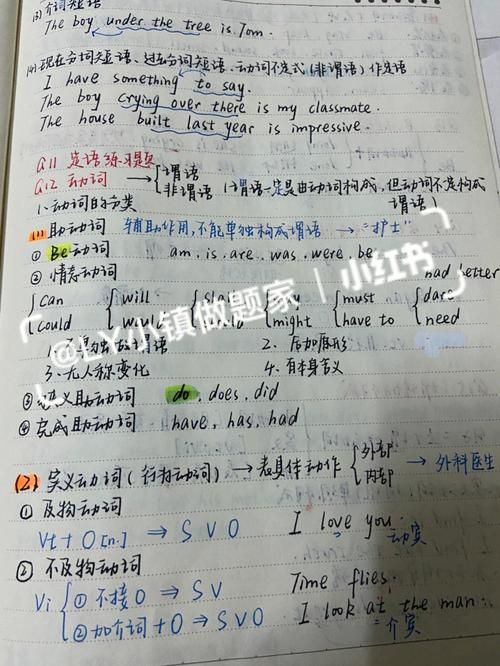 (3) 介词短语
The boy under the tree is Tom.
(4) 现在分词短语、过去分词短语、动词不定式(非谓语)作定语
I have something to say.
The boy crying over there is my classmate.
The house built last year is impressive.
Q11 定语练习题
Q12 动词 → { 谓语
非谓语 (谓语一定是由动词构成,但动词不定构成
谓语)
1、动词的分类
(1) 助动词 辅助作用,不能单独构成谓语 → "护士"
① Be动词 am . is . are . was . were . be
② 情态动词 had better
{ can { will must { dare
could might have to need
2. 后加原形
3. 无人称变化 4. 有本身含义
do . does . did
④ 完成助动词 have , has , had
(2) 实义动词(行为动词) → 表具体动作 { 外部 → 外科医生
内部
① 及物动词
Vt + O [n.] ⇒ S V O I love you.
动宾
② 不及物动词
Vi { ① 不接O ⇒ SV Time flies.
② 加介词 + O ⇒ S V O I look at the man.
介宾
@LY小镇做题家 | 小红书